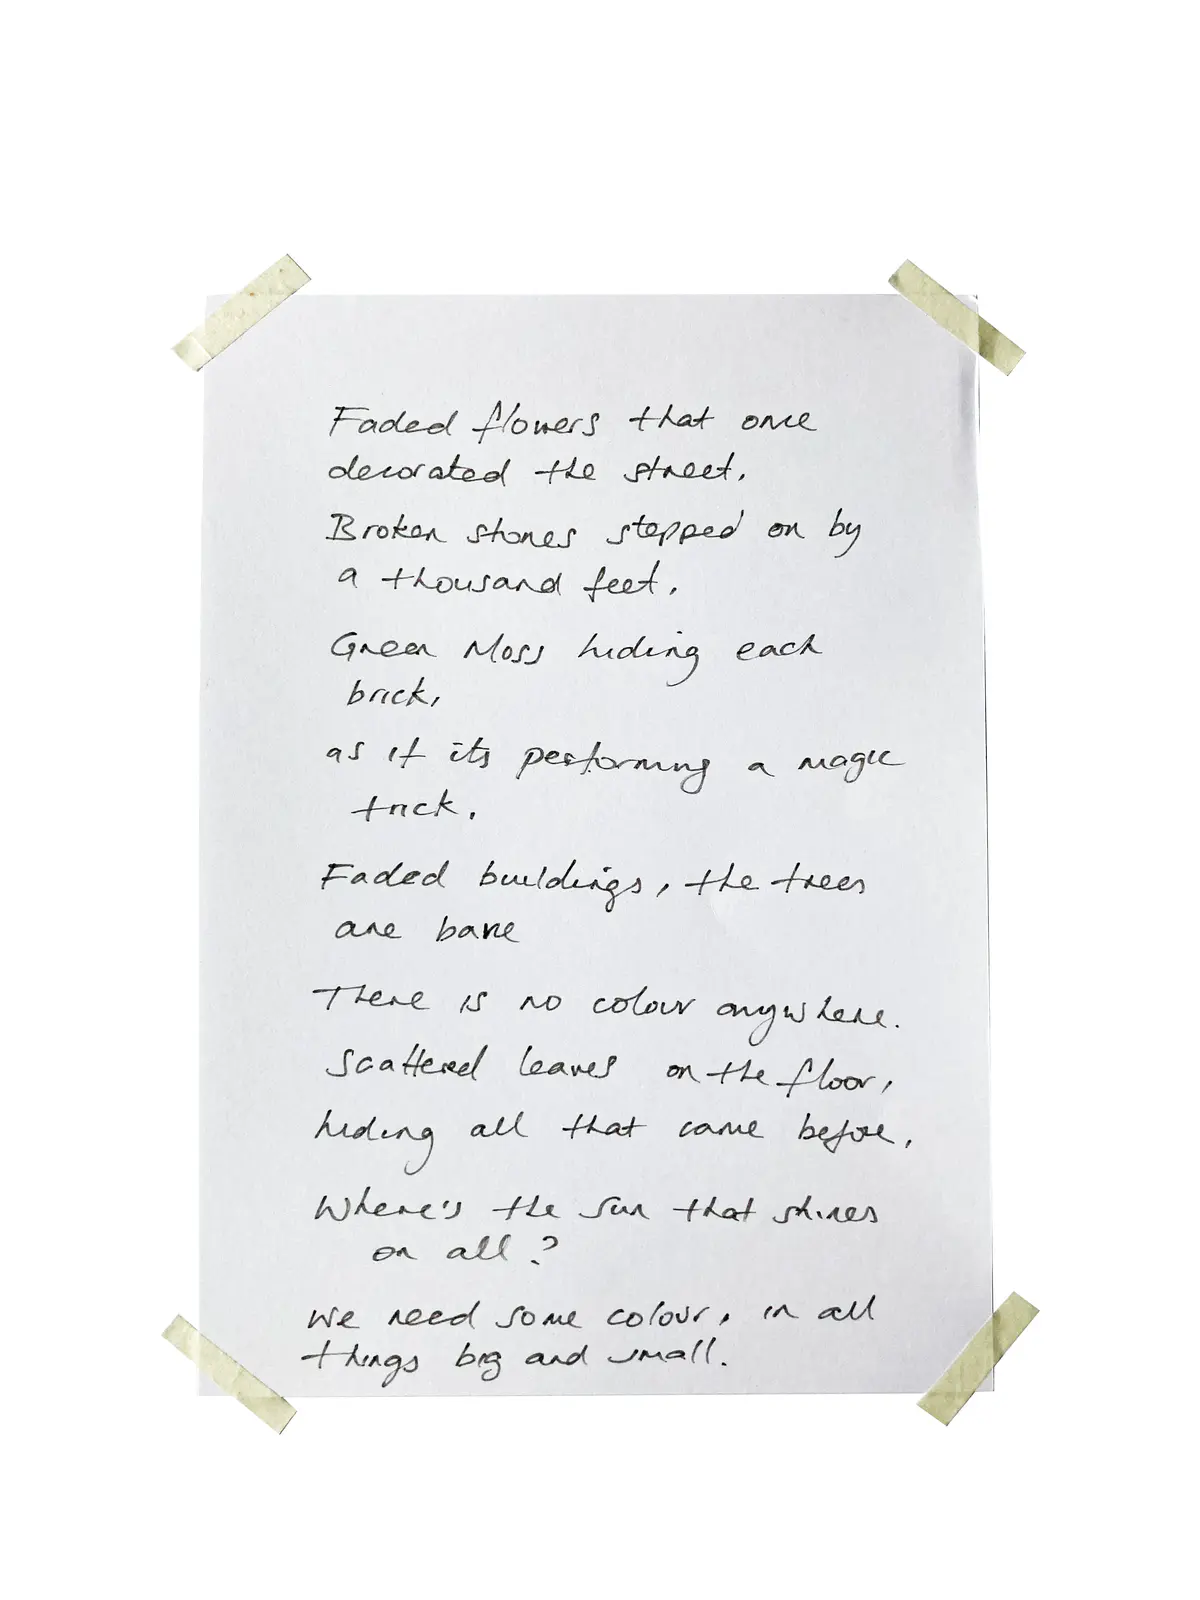 Faded flowers that once
decorated the street.
Broken stones stepped on by
a thousand feet.
Green Moss hiding each
brick,
as if its performing a magic
trick.
Faded buildings, the trees
are bare
There is no colour anywhere.
Scattered leaves on the floor,
hiding all that came before.
Where's the sun that shines
on all?
We need some colour, in all
things big and small.